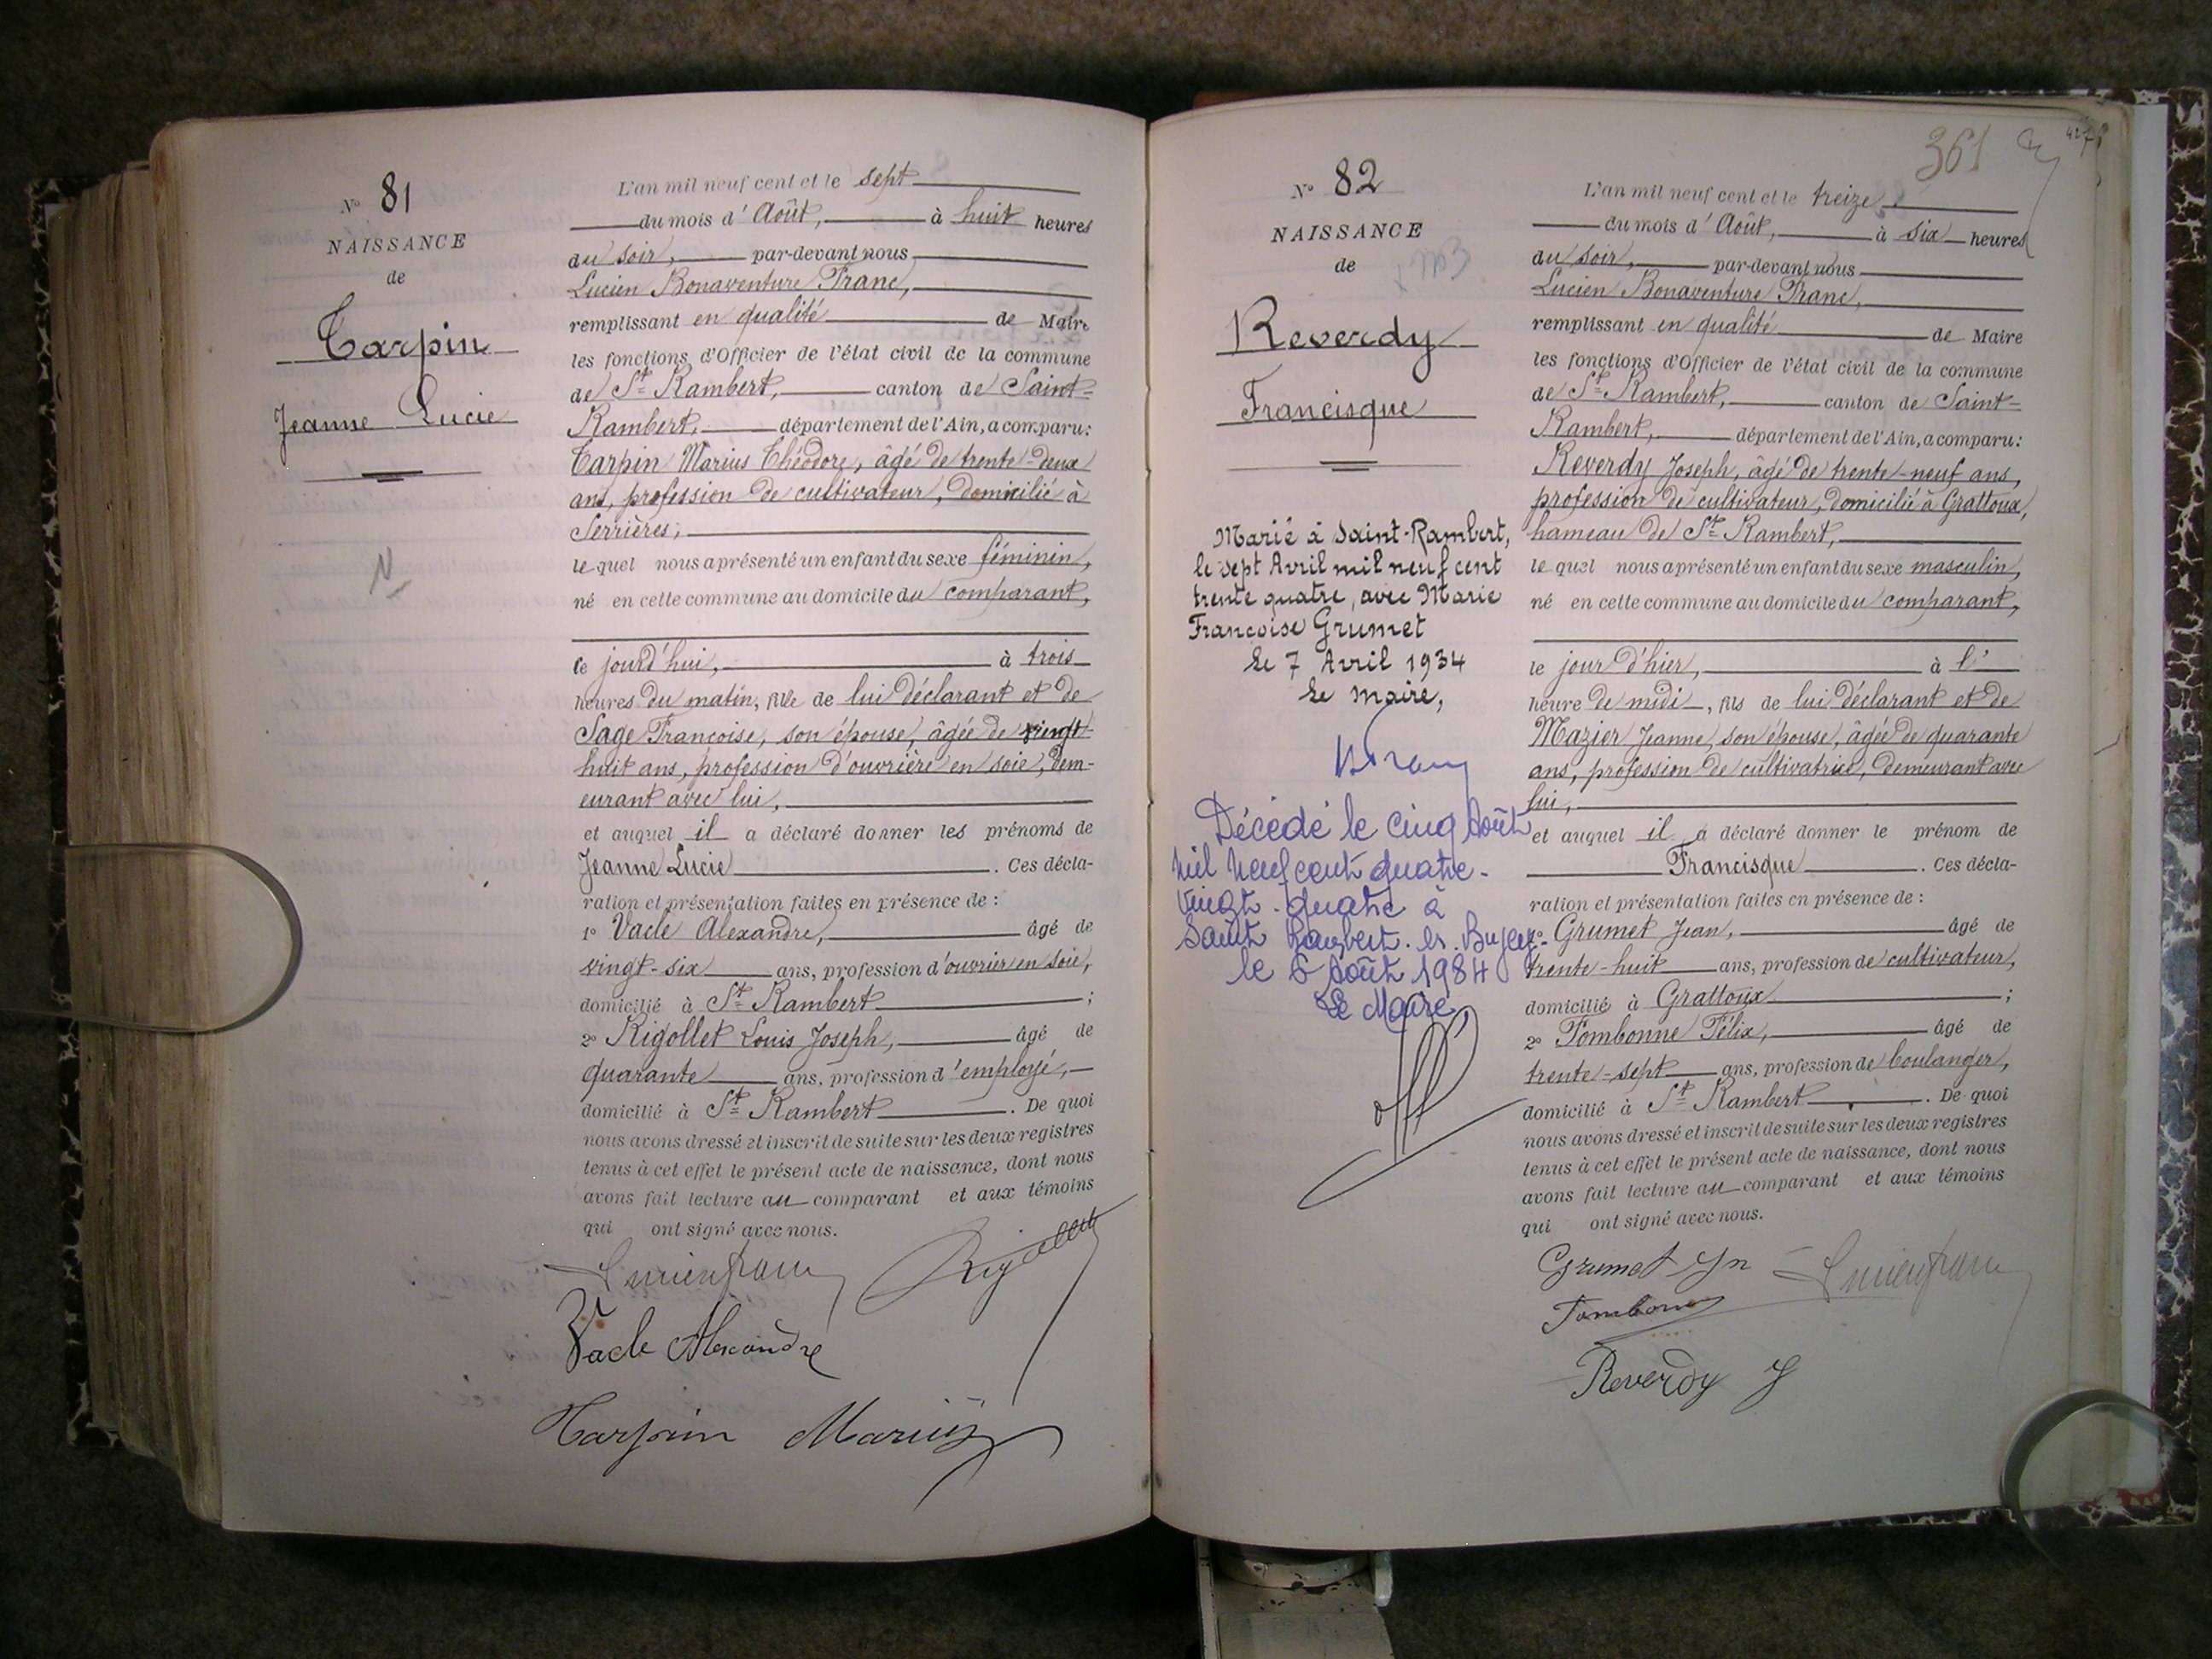 N° 81
NAISSANCE
de
Tarpin
Jeanne Lucie
N
L'an mil neuf cent et le sept
du mois d'Août, à huit heures
du soir, par-devant nous
Lucien Bonaventure Franc,
remplissant en qualité de Maire
les fonctions d'Officier de l'état civil de la commune
de St Rambert, canton de Saint-
Rambert, département de l'Ain, a comparu:
Tarpin Marius Théodore, âgé de trente-deux
ans, profession de cultivateur, domicilié à
Serrières,
lequel nous a présenté un enfant du sexe féminin,
né en cette commune au domicile du comparant,
ce jourd'hui, à trois
heures du matin, fille de lui déclarant et de
Sage Françoise, son épouse, âgée de vingt-
huit ans, profession d'ouvrière en soie, dem-
eurant avec lui,
et auquel il a déclaré donner les prénoms de
Jeanne Lucie. Ces décla-
ration et présentation faites en présence de :
1° Vacle Alexandre, âgé de
vingt-six ans, profession d'ouvrier en soie,
domicilié à St Rambert ;
2° Rigollet Louis Joseph, âgé de
quarante ans, profession d'employé,
domicilié à St Rambert. De quoi
nous avons dressé et inscrit de suite sur les deux registres
tenus à cet effet le présent acte de naissance, dont nous
avons fait lecture au comparant et aux témoins
qui ont signé avec nous.
Lucien franc Rigollet
Vacle Alexandre
Tarpin Marius
361
427
N° 82
NAISSANCE
de
Reverdy
Francisque
Marié à Saint-Rambert,
le sept Avril mil neuf cent
trente quatre, avec Marie
Françoise Grumet
Le 7 Avril 1934
Le Maire,
Décédé le cinq Août
mil neuf cent quatre-
vingt-quatre à
Saint Rambert-en-Bugey-
le 6 Août 1984
Le Maire
L'an mil neuf cent et le treize
du mois d'Août, à six heures
du soir, par-devant nous
Lucien Bonaventure Franc,
remplissant en qualité de Maire
les fonctions d'Officier de l'état civil de la commune
de St Rambert, canton de Saint-
Rambert, département de l'Ain, a comparu:
Reverdy Joseph, âgé de trente-neuf ans,
profession de cultivateur, domicilié à Grattoux,
hameau de St Rambert,
lequel nous a présenté un enfant du sexe masculin,
né en cette commune au domicile du comparant,
le jour d'hier, à l'
heure de midi, fils de lui déclarant et de
Mazier Jeanne, son épouse, âgée de quarante
ans, profession de cultivatrice, demeurant avec
lui,
et auquel il a déclaré donner le prénom de
Francisque. Ces décla-
ration et présentation faites en présence de :
1° Grumet Jean, âgé de
trente-huit ans, profession de cultivateur,
domicilié à Grattoux ;
2° Tombonne Félix, âgé de
trente-sept ans, profession de boulanger,
domicilié à St Rambert. De quoi
nous avons dressé et inscrit de suite sur les deux registres
tenus à cet effet le présent acte de naissance, dont nous
avons fait lecture au comparant et aux témoins
qui ont signé avec nous.
Grumet Jn Lucien franc
Tombonne
Reverdy J